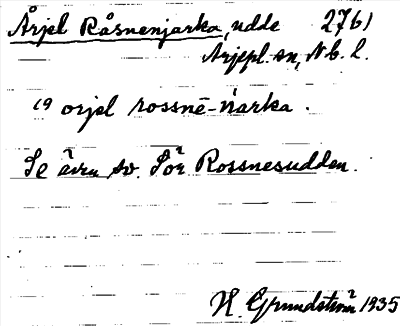 Årjel Råsnenjarka, udde 2761
Arjepl. sn, Nb. l.
19 orjel rossnē-ńarka.
Se även sv. Sör Rossnesudden.
H. Grundström 1935